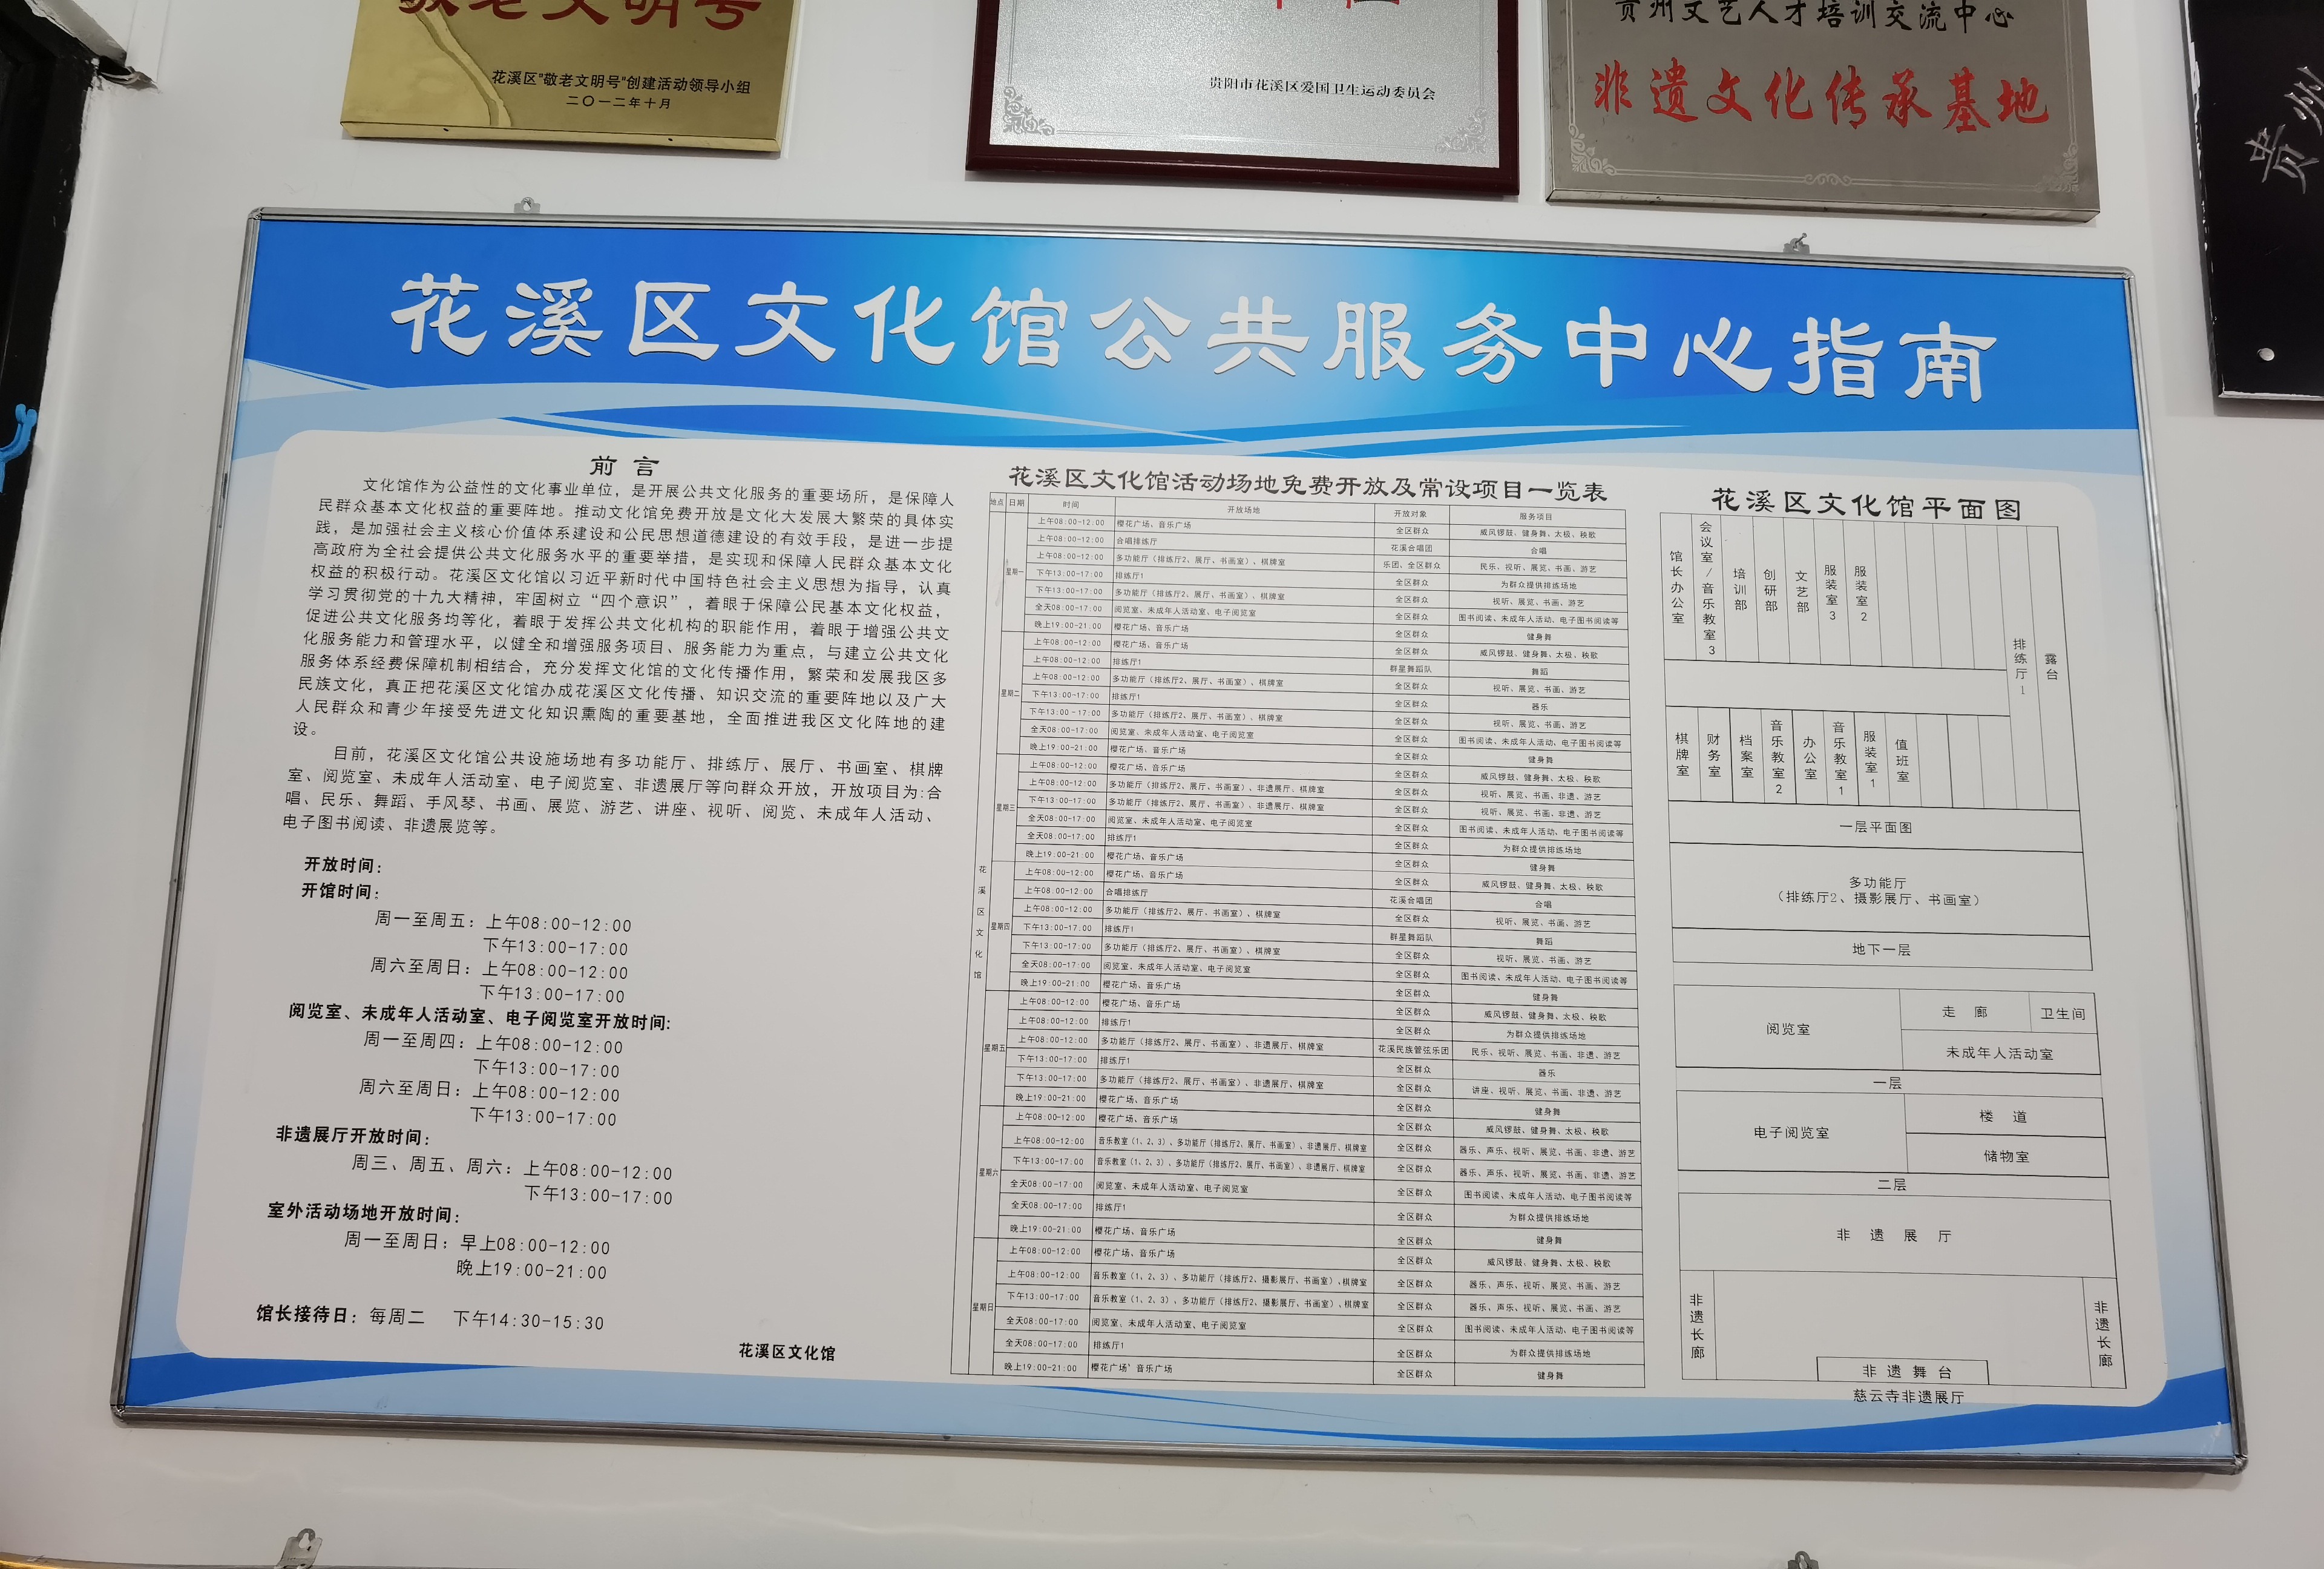 敬老文明号
花溪区"敬老文明号"创建活动领导小组
二〇一二年十月
贵阳市花溪区爱国卫生运动委员会
贵州文艺人才培训交流中心
非遗文化传承基地
贵州
花溪区文化馆公共服务中心指南
前言
文化馆作为公益性的文化事业单位，是开展公共文化服务的重要场所，是保障人
民群众基本文化权益的重要阵地。推动文化馆免费开放是文化大发展大繁荣的具体实
践，是加强社会主义核心价值体系建设和公民思想道德建设的有效手段，是进一步提
高政府为全社会提供公共文化服务水平的重要举措，是实现和保障人民群众基本文化
权益的积极行动。花溪区文化馆以习近平新时代中国特色社会主义思想为指导，认真
学习贯彻党的十九大精神，牢固树立“四个意识”，着眼于保障公民基本文化权益，
促进公共文化服务均等化，着眼于发挥公共文化机构的职能作用，着眼于增强公共文
化服务能力和管理水平，以健全和增强服务项目、服务能力为重点，与建立公共文化
服务体系经费保障机制相结合，充分发挥文化馆的文化传播作用，繁荣和发展我区多
民族文化，真正把花溪区文化馆办成花溪区文化传播、知识交流的重要阵地以及广大
人民群众和青少年接受先进文化知识熏陶的重要基地，全面推进我区文化阵地的建
设。
目前，花溪区文化馆公共设施场地有多功能厅、排练厅、展厅、书画室、棋牌
室、阅览室、未成年人活动室、电子阅览室、非遗展厅等向群众开放，开放项目为:合
唱、民乐、舞蹈、手风琴、书画、展览、游艺、讲座、视听、阅览、未成年人活动、
电子图书阅读、非遗展览等。
开放时间：
开馆时间：
周一至周五：上午08:00-12:00
下午13:00-17:00
周六至周日：上午08:00-12:00
下午13:00-17:00
阅览室、未成年人活动室、电子阅览室开放时间:
周一至周四：上午08:00-12:00
下午13:00-17:00
周六至周日：上午08:00-12:00
下午13:00-17:00
非遗展厅开放时间：
周三、周五、周六：上午08:00-12:00
下午13:00-17:00
室外活动场地开放时间：
周一至周日：早上08:00-12:00
晚上19:00-21:00
馆长接待日：每周二 下午14:30-15:30
花溪区文化馆
花溪区文化馆活动场地免费开放及常设项目一览表
地点 日期 时间 开放场地 开放对象 服务项目
花溪区文化馆
星期一
上午08:00-12:00 樱花广场、音乐广场 全区群众 威风锣鼓、健身舞、太极、秧歌
上午08:00-12:00 合唱排练厅 花溪合唱团 合唱
上午08:00-12:00 多功能厅（排练厅2、展厅、书画室）、棋牌室 乐团、全区群众 民乐、视听、展览、书画、游艺
下午13:00-17:00 排练厅1 全区群众 为群众提供排练场地
下午13:00-17:00 多功能厅（排练厅2、展厅、书画室）、棋牌室 全区群众 视听、展览、书画、游艺
全天08:00-17:00 阅览室、未成年人活动室、电子阅览室 全区群众 图书阅读、未成年人活动、电子图书阅读等
晚上19:00-21:00 樱花广场、音乐广场 全区群众 健身舞
星期二
上午08:00-12:00 樱花广场、音乐广场 全区群众 威风锣鼓、健身舞、太极、秧歌
上午08:00-12:00 排练厅1 群星舞蹈队 舞蹈
上午08:00-12:00 多功能厅（排练厅2、展厅、书画室）、棋牌室 全区群众 视听、展览、书画、游艺
下午13:00-17:00 排练厅1 全区群众 器乐
下午13:00-17:00 多功能厅（排练厅2、展厅、书画室）、棋牌室 全区群众 视听、展览、书画、游艺
全天08:00-17:00 阅览室、未成年人活动室、电子阅览室 全区群众 图书阅读、未成年人活动、电子图书阅读等
晚上19:00-21:00 樱花广场、音乐广场 全区群众 健身舞
星期三
上午08:00-12:00 樱花广场、音乐广场 全区群众 威风锣鼓、健身舞、太极、秧歌
上午08:00-12:00 多功能厅（排练厅2、展厅、书画室）、非遗展厅、棋牌室 全区群众 视听、展览、书画、非遗、游艺
下午13:00-17:00 多功能厅（排练厅2、展厅、书画室）、非遗展厅、棋牌室 全区群众 视听、展览、书画、非遗、游艺
全天08:00-17:00 阅览室、未成年人活动室、电子阅览室 全区群众 图书阅读、未成年人活动、电子图书阅读等
全天08:00-17:00 排练厅1 全区群众 为群众提供排练场地
晚上19:00-21:00 樱花广场、音乐广场 全区群众 健身舞
星期四
上午08:00-12:00 樱花广场、音乐广场 全区群众 威风锣鼓、健身舞、太极、秧歌
上午08:00-12:00 合唱排练厅 花溪合唱团 合唱
上午08:00-12:00 多功能厅（排练厅2、展厅、书画室）、棋牌室 全区群众 视听、展览、书画、游艺
下午13:00-17:00 排练厅1 群星舞蹈队 舞蹈
下午13:00-17:00 多功能厅（排练厅2、展厅、书画室）、棋牌室 全区群众 视听、展览、书画、游艺
全天08:00-17:00 阅览室、未成年人活动室、电子阅览室 全区群众 图书阅读、未成年人活动、电子图书阅读等
晚上19:00-21:00 樱花广场、音乐广场 全区群众 健身舞
星期五
上午08:00-12:00 樱花广场、音乐广场 全区群众 威风锣鼓、健身舞、太极、秧歌
上午08:00-12:00 排练厅1 全区群众 为群众提供排练场地
上午08:00-12:00 多功能厅（排练厅2、展厅、书画室）、非遗展厅、棋牌室 花溪民族管弦乐团 民乐、视听、展览、书画、非遗、游艺
下午13:00-17:00 排练厅1 全区群众 器乐
下午13:00-17:00 多功能厅（排练厅2、展厅、书画室）、非遗展厅、棋牌室 全区群众 讲座、视听、展览、书画、非遗、游艺
晚上19:00-21:00 樱花广场、音乐广场 全区群众 健身舞
星期六
上午08:00-12:00 樱花广场、音乐广场 全区群众 威风锣鼓、健身舞、太极、秧歌
上午08:00-12:00 音乐教室（1、2、3）、多功能厅（排练厅2、展厅、书画室）、非遗展厅、棋牌室 全区群众 器乐、声乐、视听、展览、书画、非遗、游艺
下午13:00-17:00 音乐教室（1、2、3）、多功能厅（排练厅2、展厅、书画室）、非遗展厅、棋牌室 全区群众 器乐、声乐、视听、展览、书画、非遗、游艺
全天08:00-17:00 阅览室、未成年人活动室、电子阅览室 全区群众 图书阅读、未成年人活动、电子图书阅读等
全天08:00-17:00 排练厅1 全区群众 为群众提供排练场地
晚上19:00-21:00 樱花广场、音乐广场 全区群众 健身舞
星期日
上午08:00-12:00 樱花广场、音乐广场 全区群众 威风锣鼓、健身舞、太极、秧歌
上午08:00-12:00 音乐教室（1、2、3）、多功能厅（排练厅2、摄影展厅、书画室）、棋牌室 全区群众 器乐、声乐、视听、展览、书画、游艺
下午13:00-17:00 音乐教室（1、2、3）、多功能厅（排练厅2、摄影展厅、书画室）、棋牌室 全区群众 器乐、声乐、视听、展览、书画、游艺
全天08:00-17:00 阅览室、未成年人活动室、电子阅览室 全区群众 图书阅读、未成年人活动、电子图书阅读等
全天08:00-17:00 排练厅1 全区群众 为群众提供排练场地
晚上19:00-21:00 樱花广场、音乐广场 全区群众 健身舞
花溪区文化馆平面图
馆长办公室
会议室/音乐教室3
培训部
创研部
文艺部
服装室3
服装室2
排练厅1
露台
棋牌室
财务室
档案室
音乐教室2
办公室
音乐教室1
服装室1
值班室
一层平面图
多功能厅
（排练厅2、摄影展厅、书画室）
地下一层
阅览室
走廊
卫生间
未成年人活动室
一层
电子阅览室
楼道
储物室
二层
非遗展厅
非遗长廊
非遗长廊
非遗舞台
慈云寺非遗展厅